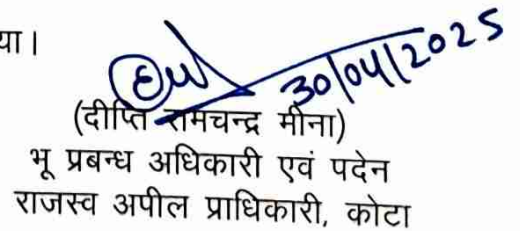 या।
30/04/2025
(दीप्ति रामचन्द्र मीना)
भू प्रबन्ध अधिकारी एवं पदेन
राजस्व अपील प्राधिकारी, कोटा